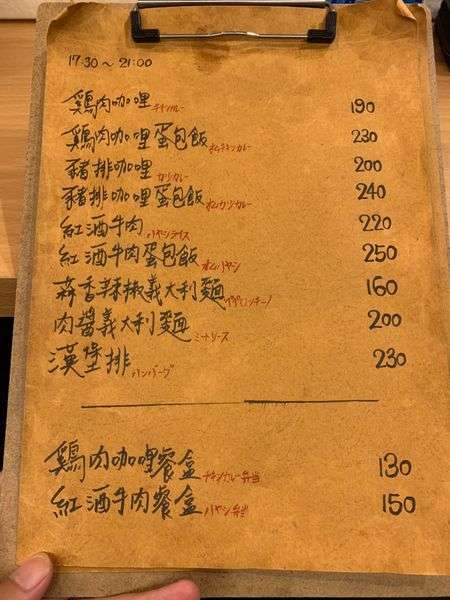 17:30～21:00
鶏肉咖哩 チキンカレー 190
鶏肉咖哩蛋包飯 オムチキンカレー 230
豬排咖哩 カツカレー 200
豬排咖哩蛋包飯 オムカツカレー 240
紅酒牛肉 ハヤシライス 220
紅酒牛肉蛋包飯 オムハヤシ 250
蒜香辣椒義大利麵 160
肉醬義大利麵 ミートソース 200
漢堡排 ハンバーグ 230
鶏肉咖哩餐盒 チキンカレー弁当 130
紅酒牛肉餐盒 ハヤシ弁当 150